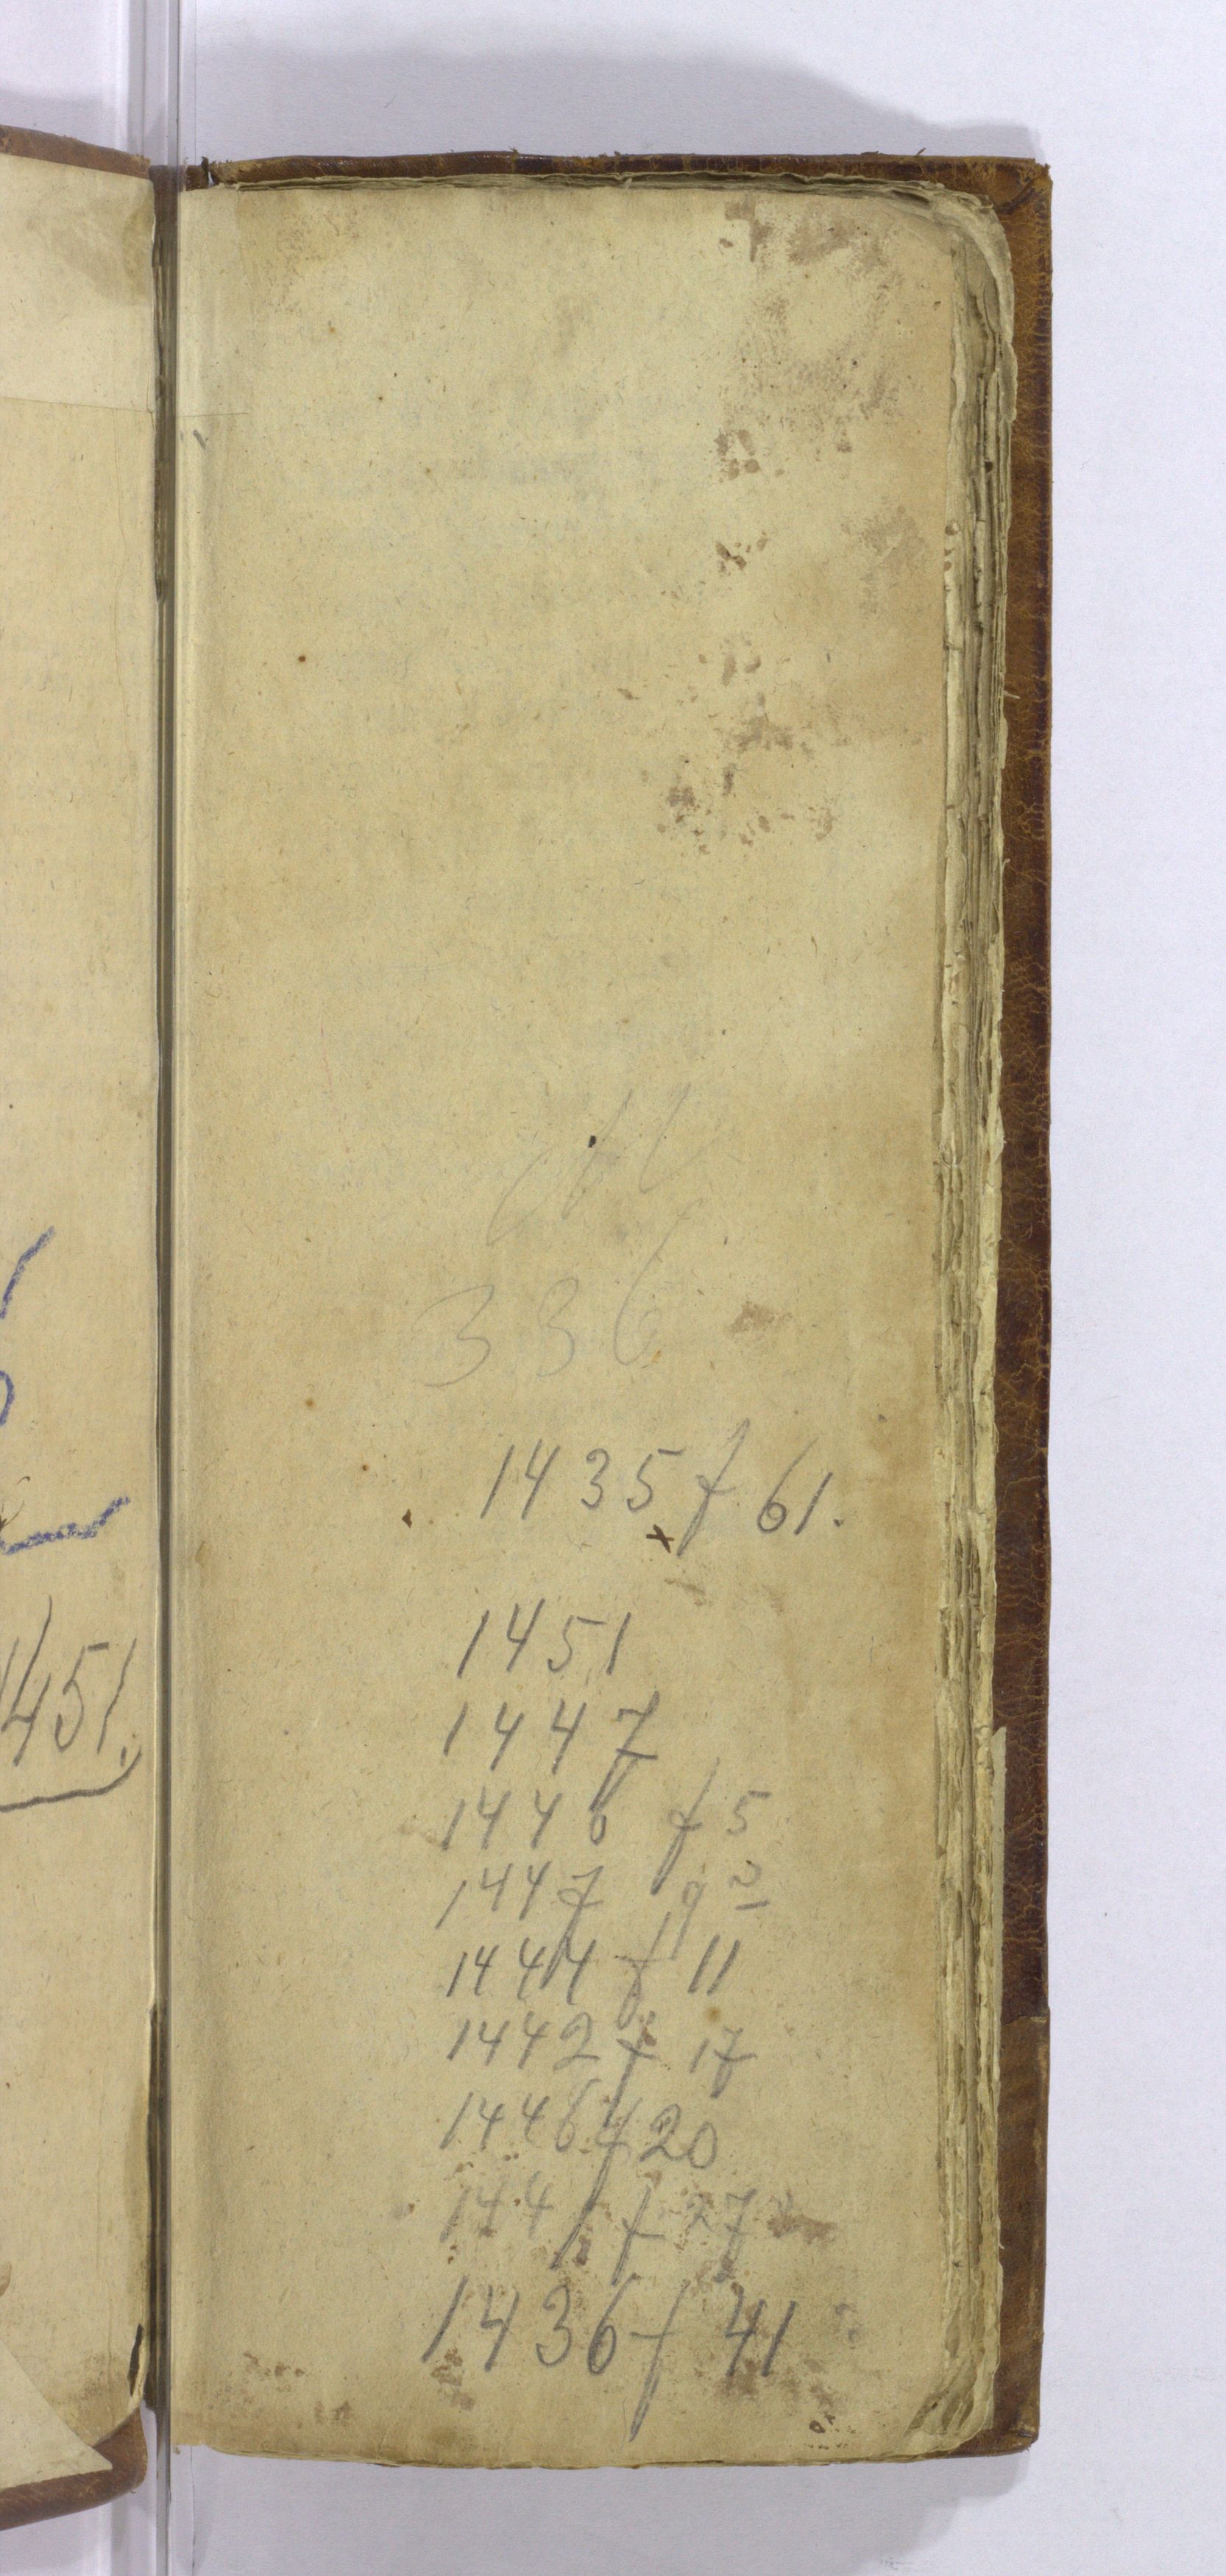 336
1435 f 61.
1451
1447
1446 f 5
1447 g 2
1444 f 11
1442 f 17
1446 f 20
1441 f 27
1436 f 41
1451.